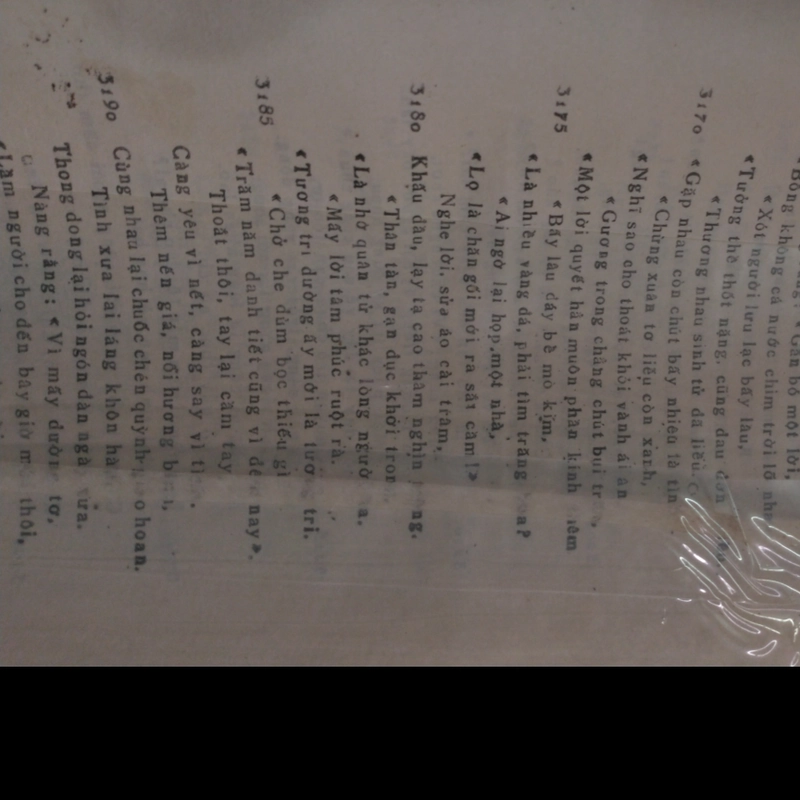 «Bỗng không cá nước chim trời lỡ
«Xót người lưu lạc bấy lâu,
«Tưởng thề thốt nặng, cũng đau đớn
3170 «Thương nhau sinh tử đã liều,
«Gặp nhau còn chút bấy nhiêu là tình
«Chừng xuân tơ liễu còn xanh,
«Nghĩ sao cho thoát khỏi vành ái ân
«Gương trong chẳng chút bụi
«Một lời quyết hẳn muôn phần kính
3175 «Bấy lâu đáy bể mò kim,
«Là nhiều vàng đá, phải tìm trăng
«Ai ngờ lại họp một nhà,
«Lọ là chăn gối mới ra sắt cầm!»
Nghe lời, sửa áo cài trâm,
3180 Khấu đầu, lạy tạ cao thâm nghìn
«Thân tàn, gạn đục khơi
«Là nhờ quân tử khác lòng
«Mấy lời tâm phúc ruột rà.
«Tương tri dường ấy mới là tri.
«Chở che đùm bọc thiếu gì
3185 «Trăm năm danh tiết cũng vì nay».
Thoắt thôi, tay lại cầm tay
Càng yêu vì nết, càng say vì
Thêm nến giá, nối hương
Cùng nhau lại chuốc chén quỳnh hoan.
3190 Tình xưa lai láng khôn
Thong dong lại hỏi ngón đàn xưa.
Nàng rằng: «Vì mấy tơ,
«Lầm người cho đến bây giờ thôi,